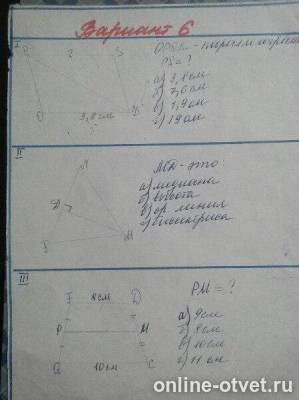 Вариант 6
I
P ? S
O 3,8см K
OPSK - параллелограмм
PS = ?
а) 3,8 см
б) 7,6 см
в) 1,9 см
г) 19 см
II
МД - это:
а) медиана
б) высота
в) ср. линия
г) биссектриса
Д
M
III
F 8см D
P M
C
10см
PM = ?
а) 9см
б) 8см
в) 10см
г) 11 см
online-otvet.ru